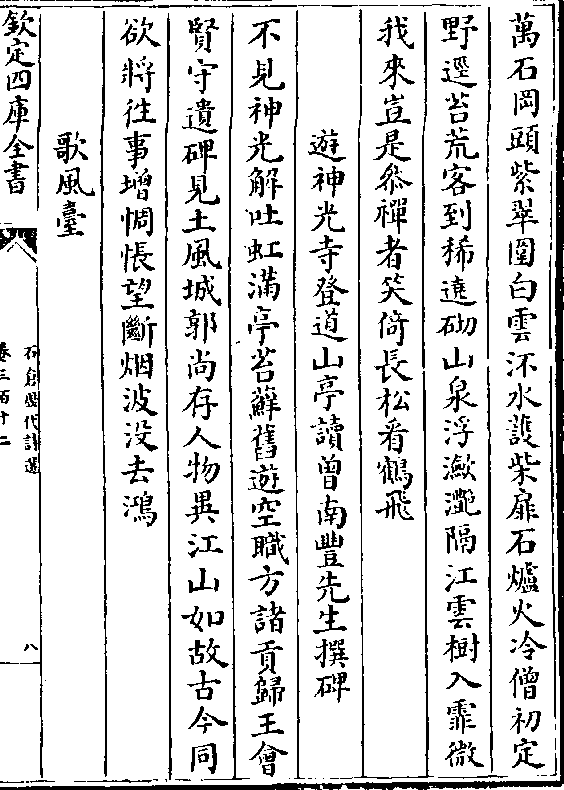 萬石岡頭紫翠圍白雲沠水護柴扉石爐火冷僧初定
野逕苔荒客到稀遶砌山泉浮瀲灔隔江雲樹入霏微
我來豈是叅禪者笑倚長松看鶴飛
遊神光寺登道山亭讀曾南豐先生撰碑
不見神光解吐虹滿亭苔蘚舊遊空職方諸貢歸王會
賢守遺碑見土風城郭尚存人物異江山如故古今同
欲將往事增惆悵望斷烟波没去鴻
歌風臺
欽定四庫全書
石倉歴代詩選
卷三百十二
八